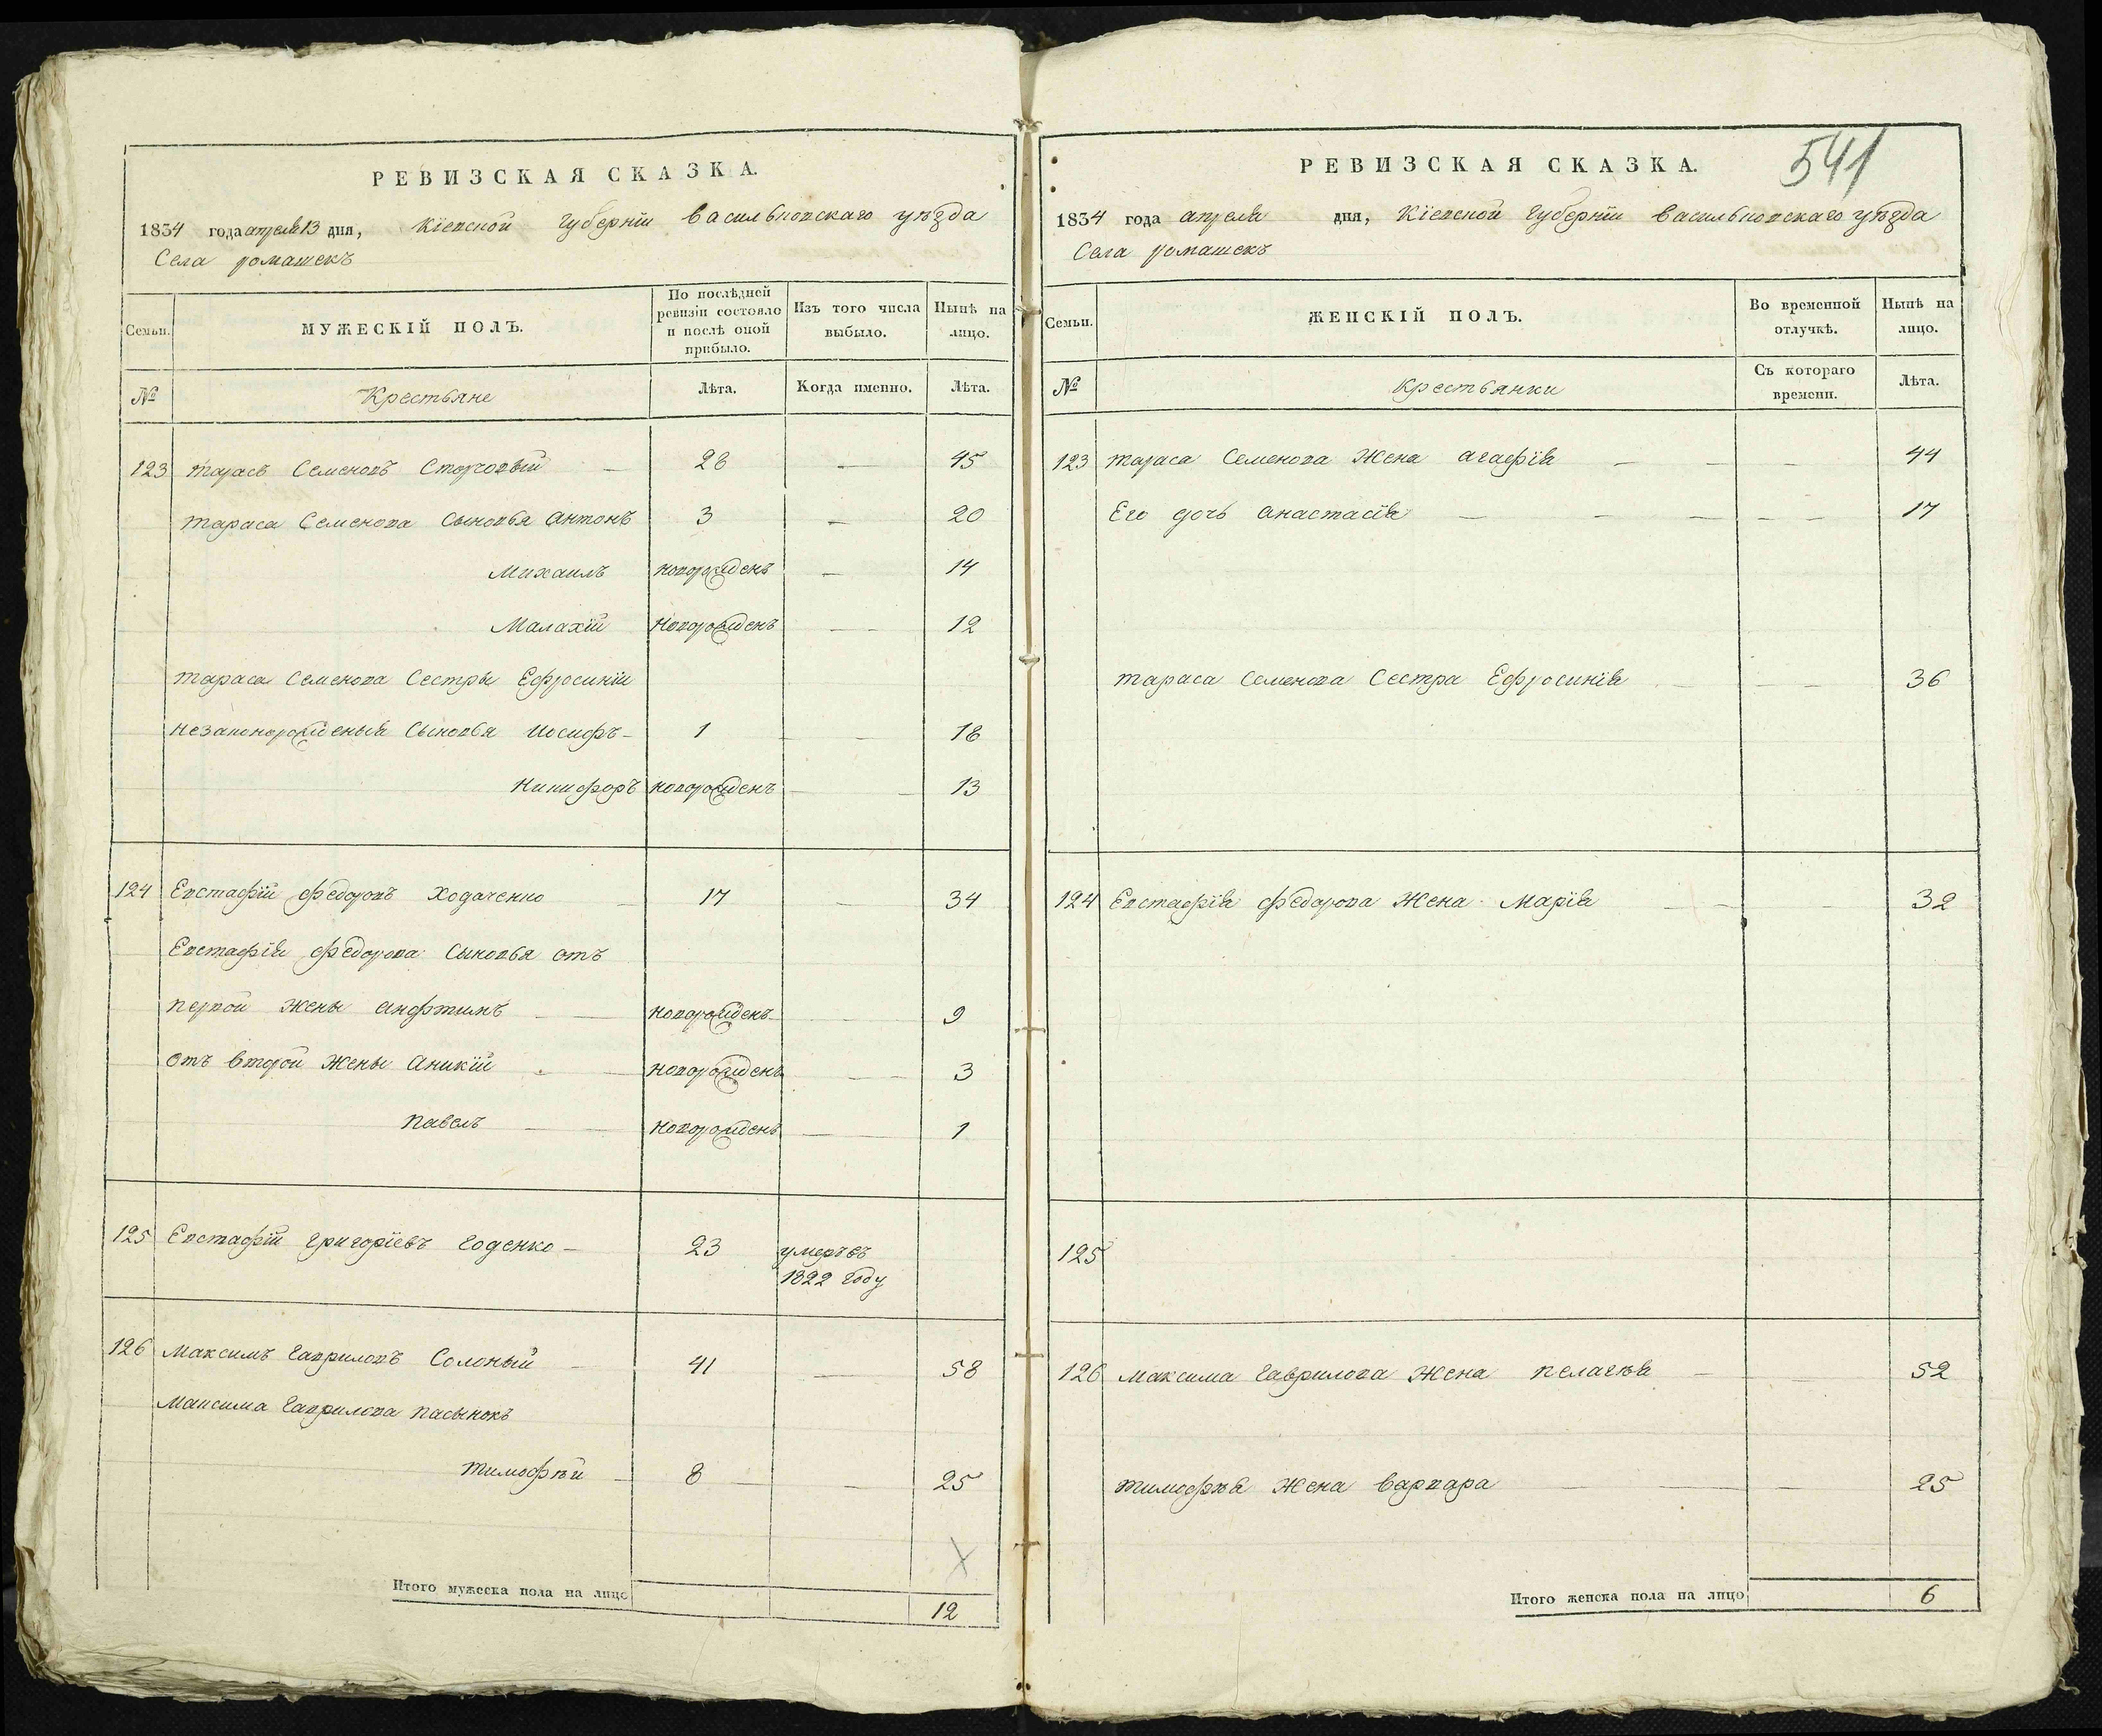 РЕВИЗСКАЯ СКАЗКА.
1834 года апреля 13 дня, Кіевской Губерніи Васильковскаго уѣзда
Села Ромашекъ
Семьи.
МУЖЕСКІЙ ПОЛЪ.
По послѣдней ревизіи состояло и послѣ оной прибыло.
Изъ того числа выбыло.
Нынѣ на лицо.
№ Крестьяне Лѣта. Когда именно. Лѣта.
123 Тарасъ Семеновъ Сторговый — 28 — 45
Тараса Семенова Сыновья Антонъ 3 — 20
Михаилъ новорожденъ — 14
Малахій новорожденъ — 12
Тараса Семенова Сестры Ефросиніи
незаконорожденыя Сыновья Іосифъ — 1 — 18
Никифоръ новорожденъ — 13
124 Евстафій Федоровъ Ходаченко — 17 — 34
Евстафія Федорова Сыновья отъ
первой жены Анфтимъ — новорожденъ — 9
отъ второй жены Аникій — новорожденъ — 3
Павелъ — новорожденъ — 1
125 Евстафій Григоріевъ Годенко — 23 умеръ въ
1822 году
126 Максимъ Гавриловъ Солоный — 41 — 58
Максима Гаврилова пасынокъ
Тимофѣй — 8 — 25
Итого мужеска пола на лицо 12
541
РЕВИЗСКАЯ СКАЗКА.
1834 года апреля дня, Кіевской Губерніи Васильковскаго уѣзда
Села Ромашекъ
Семьи.
ЖЕНСКІЙ ПОЛЪ.
Во временной отлучкѣ.
Нынѣ на лицо.
№ Крестьянки Съ котораго времени. Лѣта.
123 Тараса Семенова Жена Агафія — 44
Его дочь Анастасія — 17
Тараса Семенова Сестра Ефросинія — 36
124 Евстафія Федорова Жена Марія — 32
125
126 Максима Гаврилова Жена Пелагѣя — 52
Тимофѣя Жена Варвара — 25
Итого женска пола на лицо 6